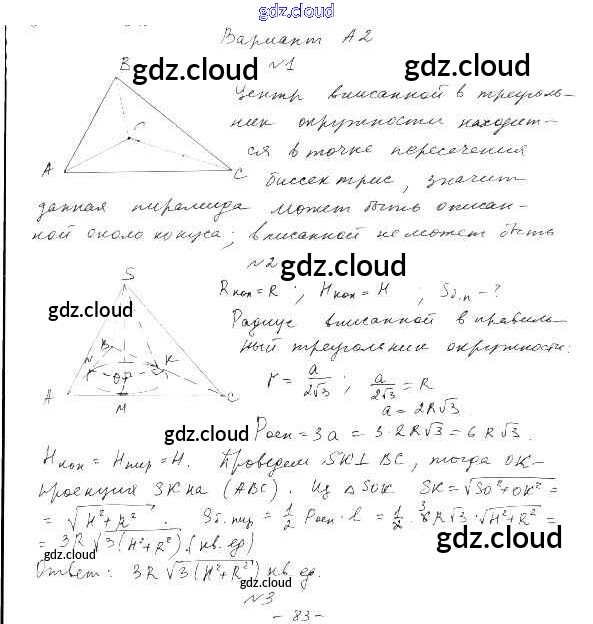 gdz.cloud
Вариант А2
N1
gdz.cloud gdz.cloud
B
O
A
C
Центр вписанной в треуголь-
ник окружности находит-
ся в точке пересечения
биссектрис, значит
данная пирамида может быть описан-
ной около конуса; вписанной не может быть
N2 gdz.cloud
S
Rкон = R ; Hкон = H ; Sб.п - ?
gdz.cloud
Радиус вписанной в правиль-
ный треугольник окружности:
B
N
K
O
A
M
C
r = a/2√3 ; a/2√3 = R
gdz.cloud
a = 2R√3.
gdz.cloud
Pосн = 3a = 3·2R√3 = 6R√3.
Hкон = Hпир = H. Проведем SK⊥BC, тогда OK-
проекция SK на (ABC). Из △SOK SK = √SO²+OK² =
gdz.cloud
= √H²+R². Sб.пир = 1/2 Pосн · l = 1/2 · 6R√3 · √H²+R² =
= 3R√3(H²+R²) (кв. ед)
gdz.cloud gdz.cloud
Ответ: 3R√3(H²+R²) кв. ед.
gdz.cloud
N3
- 83 -